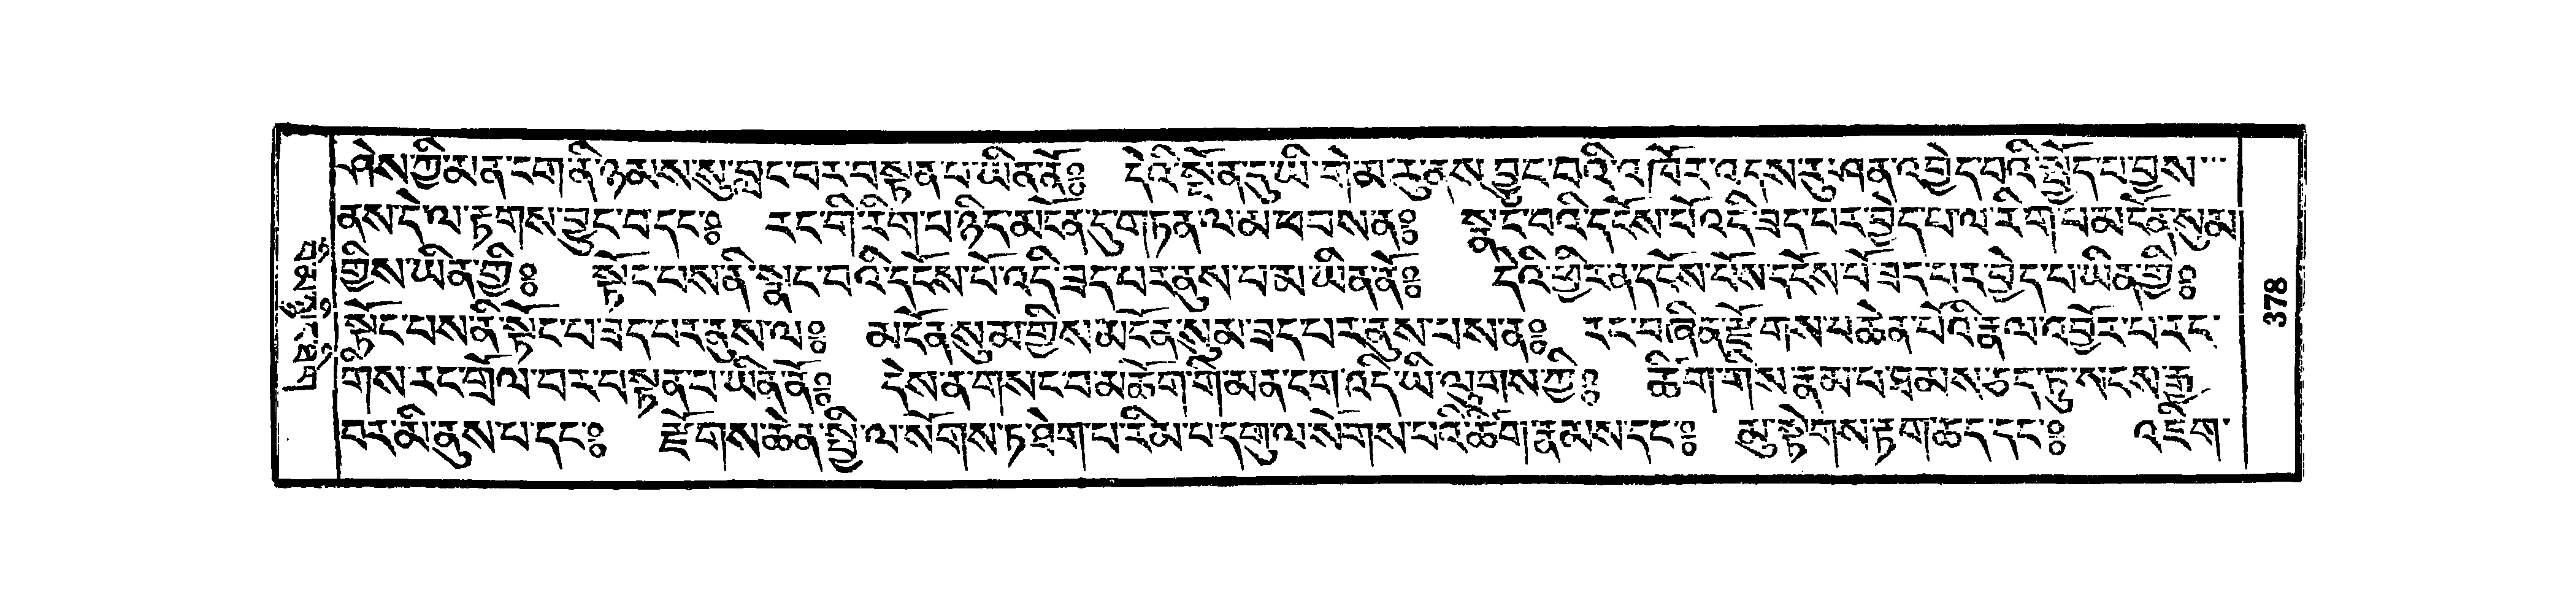 ཤེས་ཀྱི་མན་ངག་ནི་ཉམས་སུ་བླང་བར་བསྟན་པ་ཡིན་ནོ༔ དེའི་སྔོན་དུ་ཡི་གེ་མ་རུ་ནས་བྱུང་བའི་འཁོར་འདས་རུ་ཤན་འབྱེད་བའི་སྤྱོད་པ་བྱས་་་
ནས་དེ་ལ་རྟགས་བྱུང་བ་དང་༔ རང་གི་རིག་པ་ཉིད་མངོན་དུ་གཏན་ལ་མ་ཕབ་པས་ན༔ སྣང་བའི་དངོས་པོ་འདི་ཟད་པར་བྱེད་པ་ལ་རིག་པ་མངོན་སུམ
གྱིས་ཡིན་གྱི༔ སྟོང་པས་ནི་སྣང་བའི་དངོས་པོ་འདི་ཟད་པར་ནུས་པ་མ་ཡིན་ནོ༔ དེའི་ཕྱིར་ན་དངོས་པོས་དངོས་པོ་ཟད་པར་བྱེད་པ་ཡིན་གྱི༔
སྟོང་པས་ནི་སྟོང་པ་ཟད་པར་ནུས་ལ༔ མངོན་སུམ་གྱིས་མངོན་སུམ་ཟད་པར་ནུས་པས་ན༔ རང་བཞིན་རྫོགས་པ་ཆེན་པོའི་རྣལ་འབྱོར་པ་རང་
གིས་རང་གྲོལ་བར་བསྟན་པ་ཡིན་ནོ༔ དེས་ན་གསང་བ་མཆོག་གི་མན་ངག་འདི་ཡི་ལུགས་ཀྱི༔ ཚིག་གིས་རྣམ་པ་ཐམས་ཅད་དུ་སངས་རྒྱ
བར་མི་ནུས་པ་དང་༔ རྫོགས་ཆེན་སྤྱི་ལ་སོགས་ཏ་ཐེག་པ་རིམ་པ་དགུ་ལ་སོགས་པའི་ཚིག་རྣམས་དང་༔ མུ་སྟེགས་རྟག་ཆད་དང་༔ འཇིག་
378